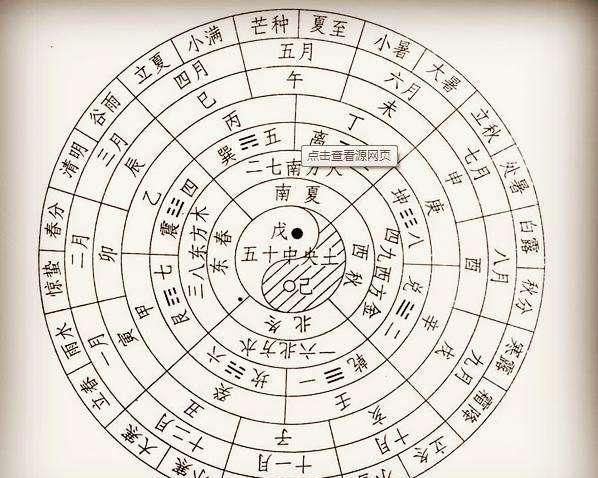 芒种
夏至
小暑
大暑
立秋
处暑
白露
秋分
寒露
霜降
立冬
小寒
大寒
立春
雨水
惊蛰
春分
清明
谷雨
立夏
小满
五月
六月
七月
八月
九月
十月
十一月
十二月
一月
二月
三月
四月
午
未
申
酉
戌
亥
子
丑
寅
卯
辰
巳
丙
丁
庚
辛
壬
癸
甲
乙
离
坤☷八
兑☱二
乾☰一
坎☵六
艮☶七
震☳四
巽☴五
点击查看源网页
二七南方火
四九西方金
一六北方水
三八东方木
南夏
西秋
北冬
东春
戊
五十中央土
己